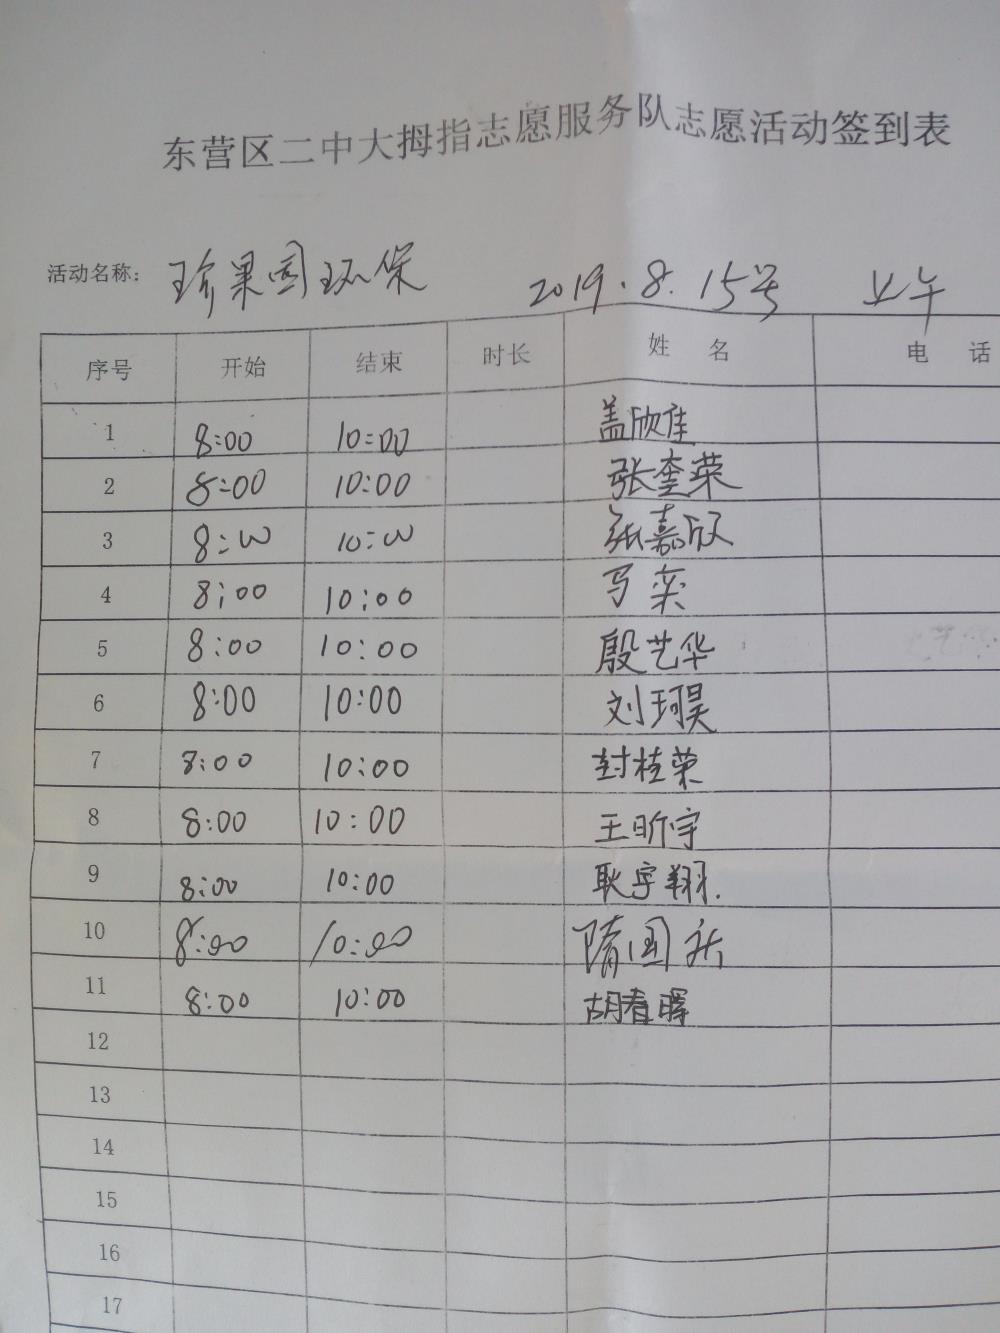 东营区二中大拇指志愿服务队志愿活动签到表
活动名称: 珍果园环保 2019.8.15号 上午
序号 开始 结束 时长 姓名 电话
1 8:00 10:00 盖欣佳
2 8:00 10:00 张奎荣
3 8:00 10:00 张嘉欣
4 8:00 10:00 马奕
5 8:00 10:00 殷艺华
6 8:00 10:00 刘珂昊
7 8:00 10:00 封桂荣
8 8:00 10:00 王昕宇
9 8:00 10:00 耿宇翔.
10 8:00 10:00 隋国新
11 8:00 10:00 胡春晖
12
13
14
15
16
17